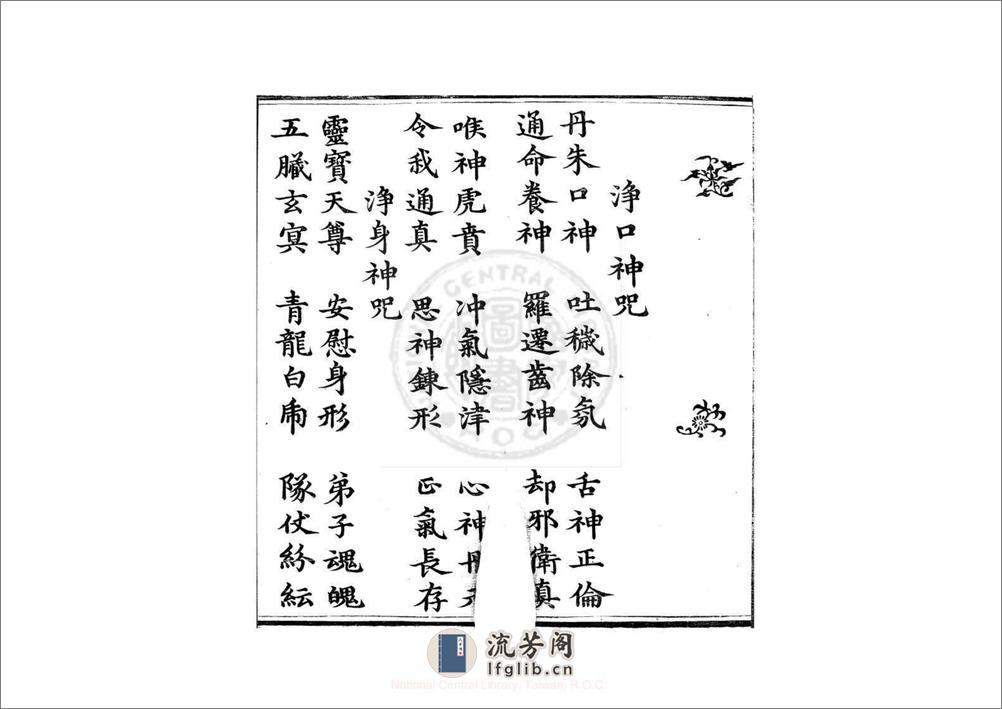 淨口神咒
丹朱口神 吐穢除氛 舌神正倫
通命養神 羅遷齒神 却邪衛真
喉神虎賁 冲氣隱津 心神丹
令我通真 思神鍊形 正氣長存
淨身神咒
靈寶天尊 安慰身形 弟子魂魄
五臟玄冥 青龍白虎 隊仗紛紜
CENTRAL
圖
書
流芳阁
lfglib.cn
National Central Library, Taiwan, R.O.C.